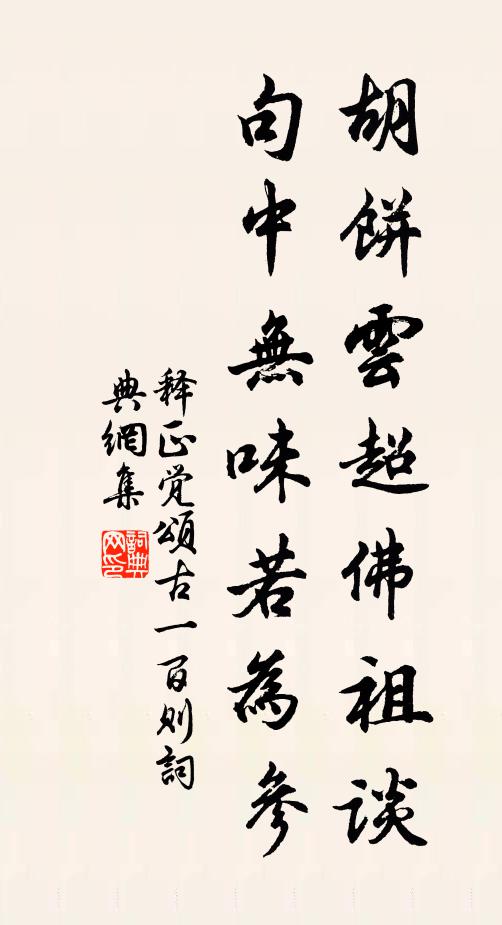 胡餅雲超佛祖談
句中無味若為參
释正覺頌古一百则詞
典網集
詞典
网印